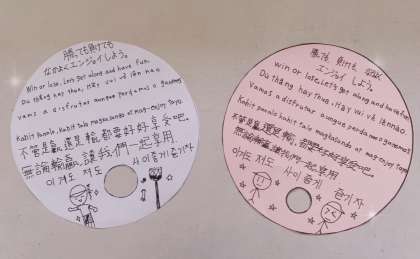 勝っても負けても
なかよくエンジョイしよう。
Win or lose. Let's get along and have fun.
Dù thắng hay thua, Hãy vui vẻ lên nào
Vamos a disfrutar aunque perdamos o ganemos
Kahit panalo, Kahit talo magkalando at mag-enjoy tayo.
不管是贏還是輸都要好好享受吧。
無論輸贏，讓我們一起享用.
이겨도 져도 사이좋게 즐기자
勝っても 負けても なかよく
エンジョイ しよう。
Win or lose. Let's get along and have fun
Dù thắng hay thua. Hãy vui vẻ lên nào
Vamos a disfrutar aunque perdamos o ganemos
Kahit panalo kahit talo magkalando at mag enjoy tayo
不管是贏還是輸，都要好好享受吧
無論輸贏，讓我們一起享用.
이겨도 져도 사이좋게 즐기자